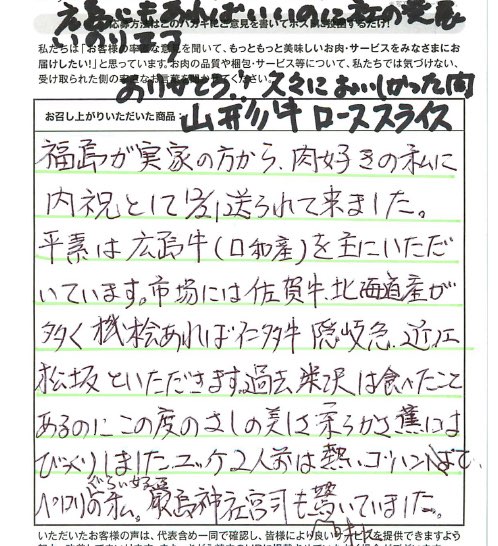 ご応募方法はこのハガキにご意見を書いてポストに投函するだけ!
私たちは「お客様の率直な意見を聞いて、もっともっと美味しいお肉・サービスをみなさまにお
届けしたい!」と思っています。お肉の品質や梱包・サービス等について、私たちでは気づけない、
受け取られた側の
ありがとう!! 久々においしかった肉
お召し上がりいただいた商品:
山形牛 ローススライス
福島が実家の方から、肉好きの私に
内祝として 送られて来ました。
平素は広島牛(口和産)を主にいただ
いています。市場には佐賀牛、北海道産が
多く 機桧あれば仁多牛 隠岐 、近江
松坂といただきます。過去、米沢は食べたこと
あるのにこの度のさしの美しさ柔らかさ薫には
びっくりしました。ユッケ2人前は熱いゴハンに
ペロリの私。厳島神社宮司も驚いていました。
いただいたお客様の声は、代表含め一同で確認し、皆様により良いサービスが提供できますよう